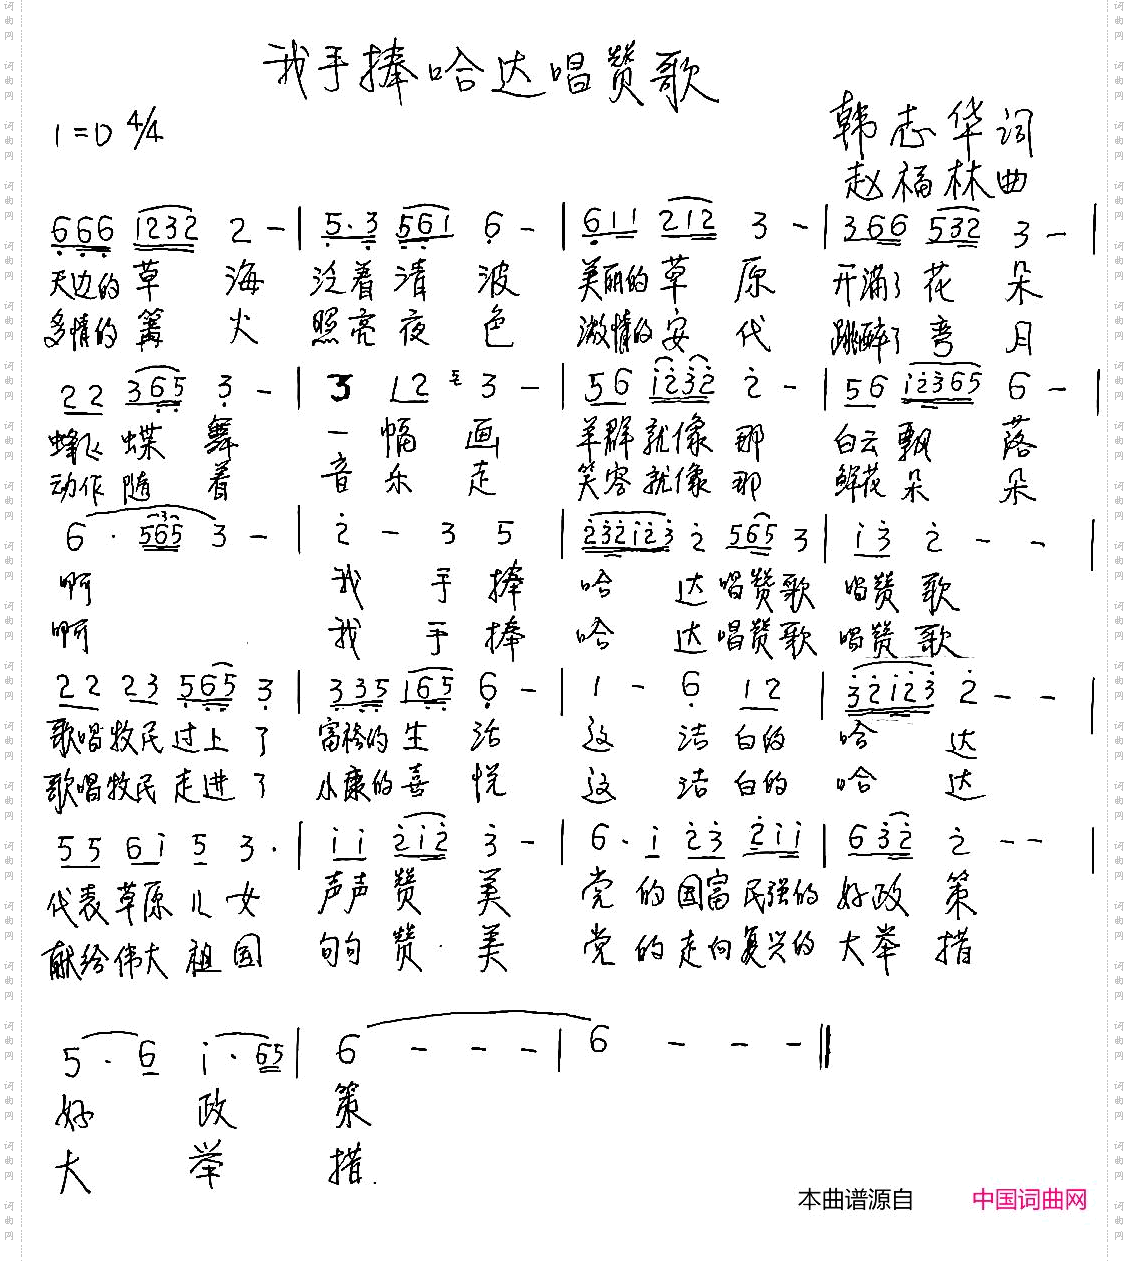 我手捧哈达唱赞歌
1=D 4/4
韩志华词
赵福林曲
666 1232 2 - | 5·3 561 6 - | 611 212 3 - | 366 532 3 - |
天边的草 海 泛着清 波 美丽的草 原 开满了花 朵
多情的篝 火 照亮夜 色 激情的安 代 跳醉了弯 月
22 365 3 - | 3 12 3 - | 56 1232 2 - | 56 12365 6 - |
蜂飞蝶 舞 一 幅 画 羊群就像 那 白云飘 落
动作随 着 音 乐 走 笑容就像 那 鲜花朵 朵
6 · 565 3 - | 2 - 3 5 | 232123 2 565 3 | 13 2 - - |
啊 我 手 捧 哈 达唱赞歌 唱赞 歌
啊 我 手 捧 哈 达唱赞歌 唱赞 歌
22 23 565 3 | 335 165 6 - | 1 - 6 12 | 32123 2 - - |
歌唱牧民过上了 富裕的生 活 这 洁白的 哈 达
歌唱牧民走进了 小康的喜 悦 这 洁白的 哈 达
55 61 5 3· | 11 212 3 - | 6·1 23 211 | 632 2 - - |
代表草原儿女 声声赞 美 党 的国富民强的 好政 策
献给伟大祖国 句句赞 美 党 的走向复兴的 大举 措
5·6 1·65 | 6 - - - | 6 - - - ||
好 政 策
大 举 措
本曲谱源自 中国词曲网